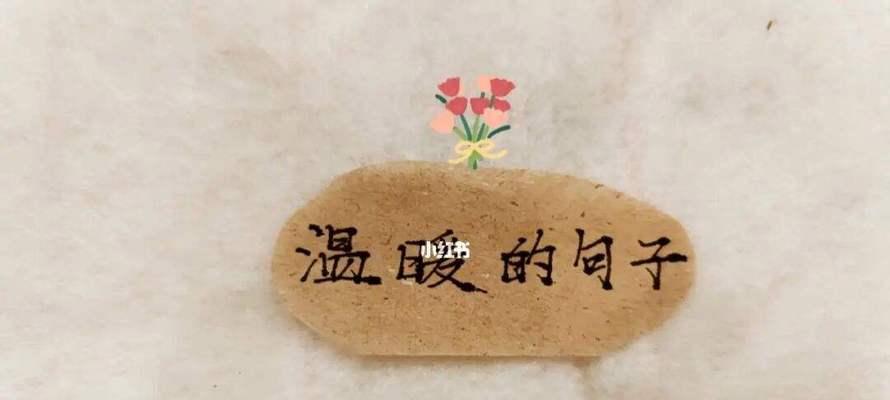 温暖的句子
小红书